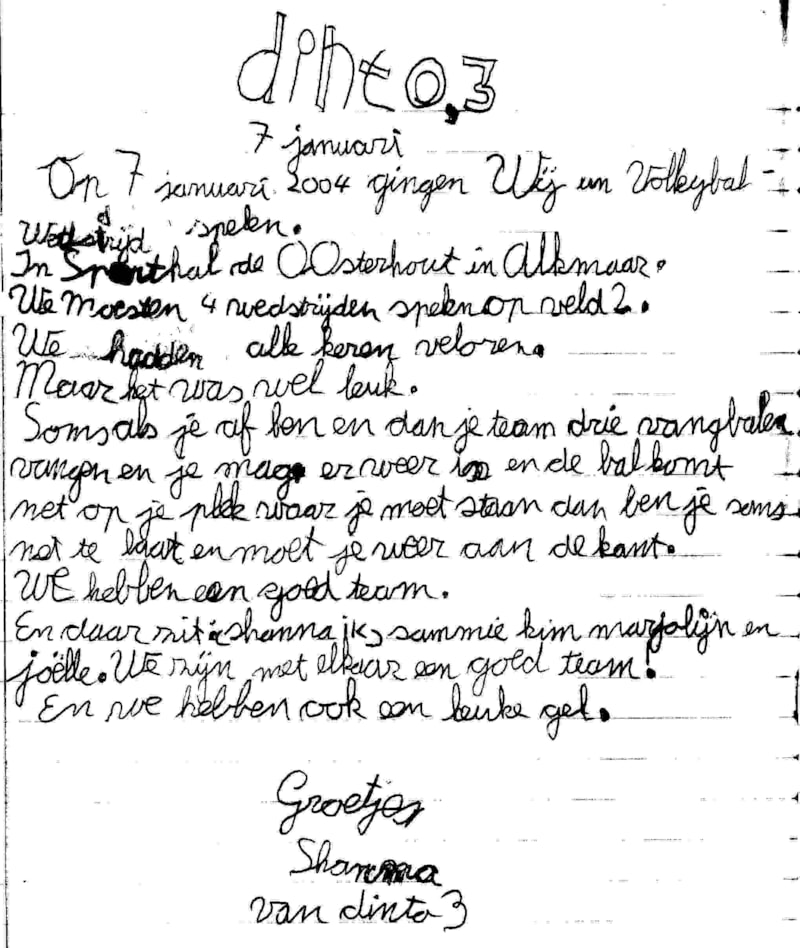 dinto,3
7 januari
Op 7 januari 2004 gingen Wij een Volleybal-
Wedstrijd spelen.
In Sporthal de OOsterhout in Alkmaar.
We Moesten 4 wedstrijden spelen op veld 2.
We hadden alle keren veloren.
Maar het was wel leuk.
Soms als je af ben en dan je team drie vangbalen
vangen en je mag er weer in en de bal komt
net op je plek waar je moet staan dan ben je soms
net te laat en moet je weer aan de kant.
WE hebben een goed team.
En daar zit: shanna ik, sammie kim marjolijn en
joëlle. We zijn met elkaar een goed team!
En we hebben ook een leuke gel.
Groetjes
Shanna
van dinto 3